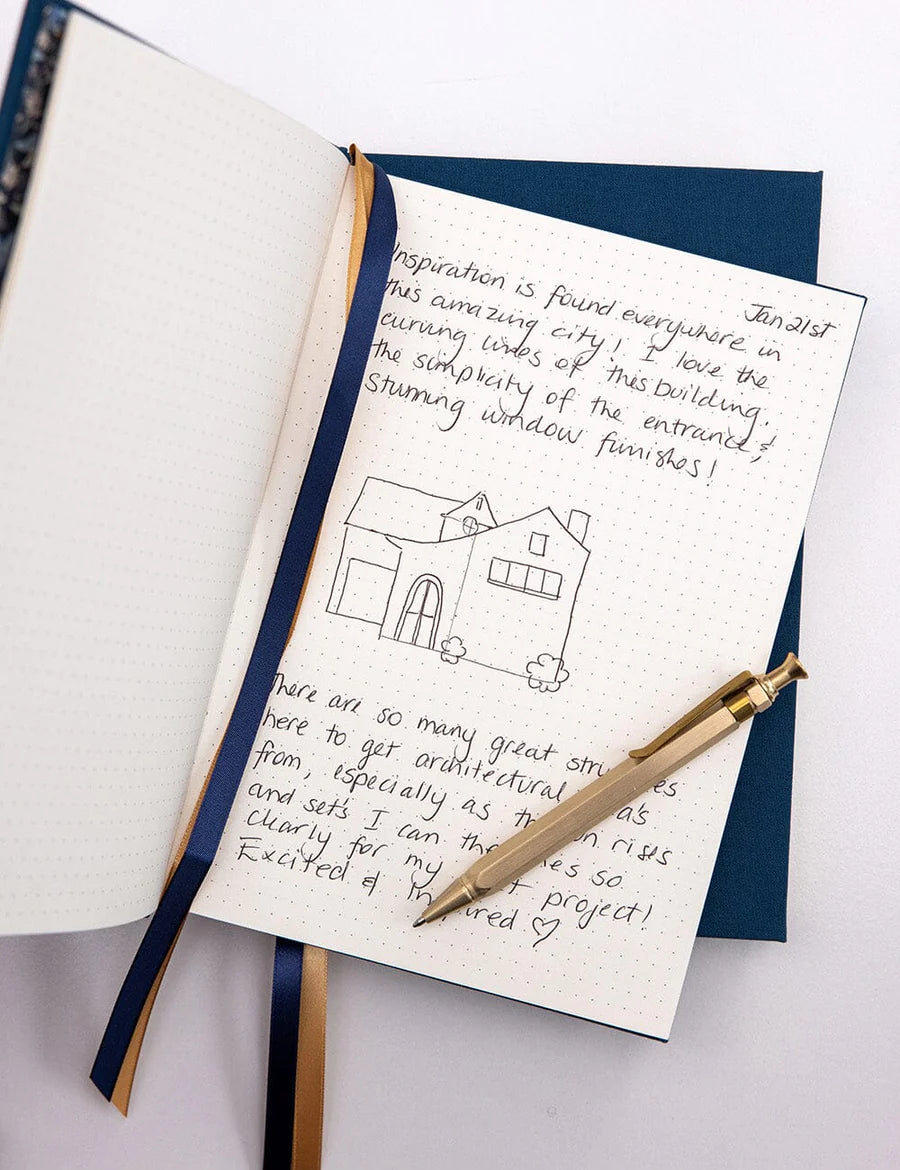 Jan 21st
Inspiration is found everywhere in
this amazing city! I love the
curving lines of this building.
the simplicity of the entrance, &
stunning window funishes!
There are so many great
here to get architectural
from, especially as rises
and set's I can so
clearly for my project!
Excited &